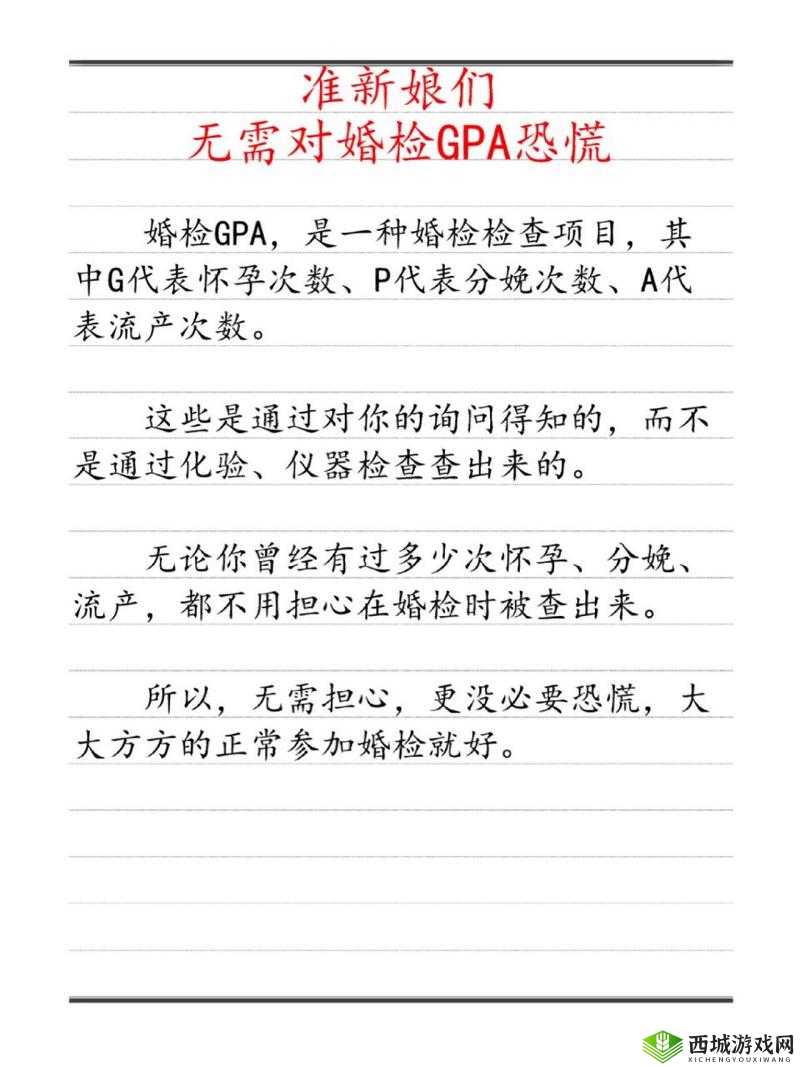 准新娘们
无需对婚检GPA恐慌
婚检GPA，是一种婚检检查项目，其
中G代表怀孕次数、P代表分娩次数、A代
表流产次数。
这些是通过对你的询问得知的，而不
是通过化验、仪器检查查出来的。
无论你曾经有过多少次怀孕、分娩、
流产，都不用担心在婚检时被查出来。
所以，无需担心，更没必要恐慌，大
大方方的正常参加婚检就好。
西城游戏网
XICHENGYOUXIWANG